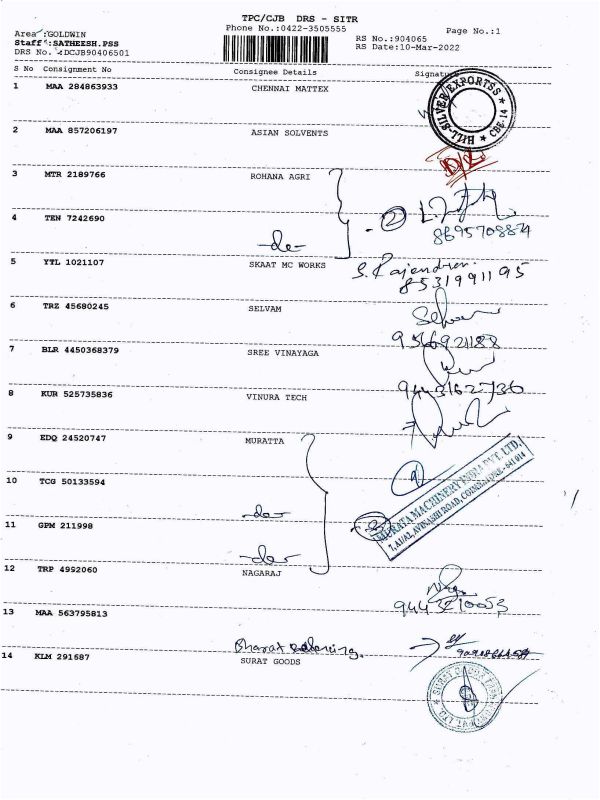 TPC/CJB DRS - SITR
Area :GOLDWIN
Phone No.:0422-3505555
Page No.:1
Staff :SATHEESH.PSS
RS No.:904065
DRS No. :DCJB90406501
RS Date:10-Mar-2022
S No Consignment No Consignee Details Signature
1 MAA 284863933 CHENNAI MATTEX
HILL-SILVER EXPORTSS CBE-14
2 MAA 857206197 ASIAN SOLVENTS
3 MTR 2189766 ROHANA AGRI
4 TEN 7242690 -do-
2
8695708874
5 YTL 1021107 SKAAT MC WORKS
S. Rajendren.
8531991195
6 TRZ 45680245 SELVAM
Selvam
9566921188
7 BLR 4450368379 SREE VINAYAGA
9443162736
8 KUR 525735836 VINURA TECH
9 EDQ 24520747 MURATTA
10 TCG 50133594 -do-
MURATA MACHINERY INDIA PVT. LTD.
AVINASHI ROAD, COIMBATORE - 641 014
11 GPM 211998 -do-
12 TRP 4992060 NAGARAJ
13 MAA 563795813 Bharat
14 KLM 291687 SURAT GOODS